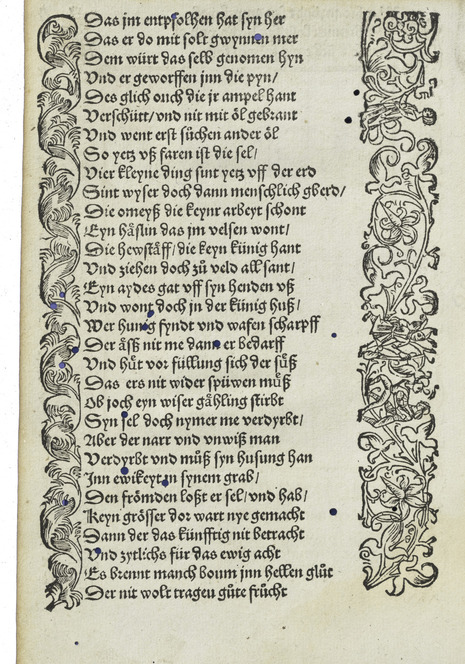 Das jm entpfolhen hat syn her
Das er do mit solt gwynnen mer
Dem würt das selb genomen hyn
Vnd er geworffen jnn die pyn/
Des glich ouch die jr ampel hant
Verschütt/ vnd nit mit öl gebrant
Vnd went erst sůchen ander öl
So yetz vß faren ist die sel/
Vier kleyne ding sint yetz vff der erd
Sint wyser doch dann menschlich gberd/
Die omeyß die keynr arbeyt schont
Eyn häßlin das jm velsen wont/
Die hewstäff/ die keyn künig hant
Vnd ziehen doch zů veld all sant/
Eyn aydes gat vff syn henden vß
Vnd wont doch jn der künig huß/
Wer hunig fyndt vnd wafen scharpff
Der äß nit me dann er bedarff
Vnd hůt vor füllung sich der sůß
Das ers nit wider spüwen můß
Ob joch eyn wiser gähling stirbt
Syn sel doch nymer me verdyrbt/
Aber der narr vnd vnwiß man
Verdyrbt vnd můß syn husung han
Jnn ewikeyt jn synem grab/
Den frömden loßt er sel/ vnd hab/
Keyn grösser dor wart nye gemacht
Dann der das künfftig nit betracht
Vnd zytlichs für das ewig acht
Es brennt manch boum jnn hellen glůt
Der nit wolt tragen gůte frücht